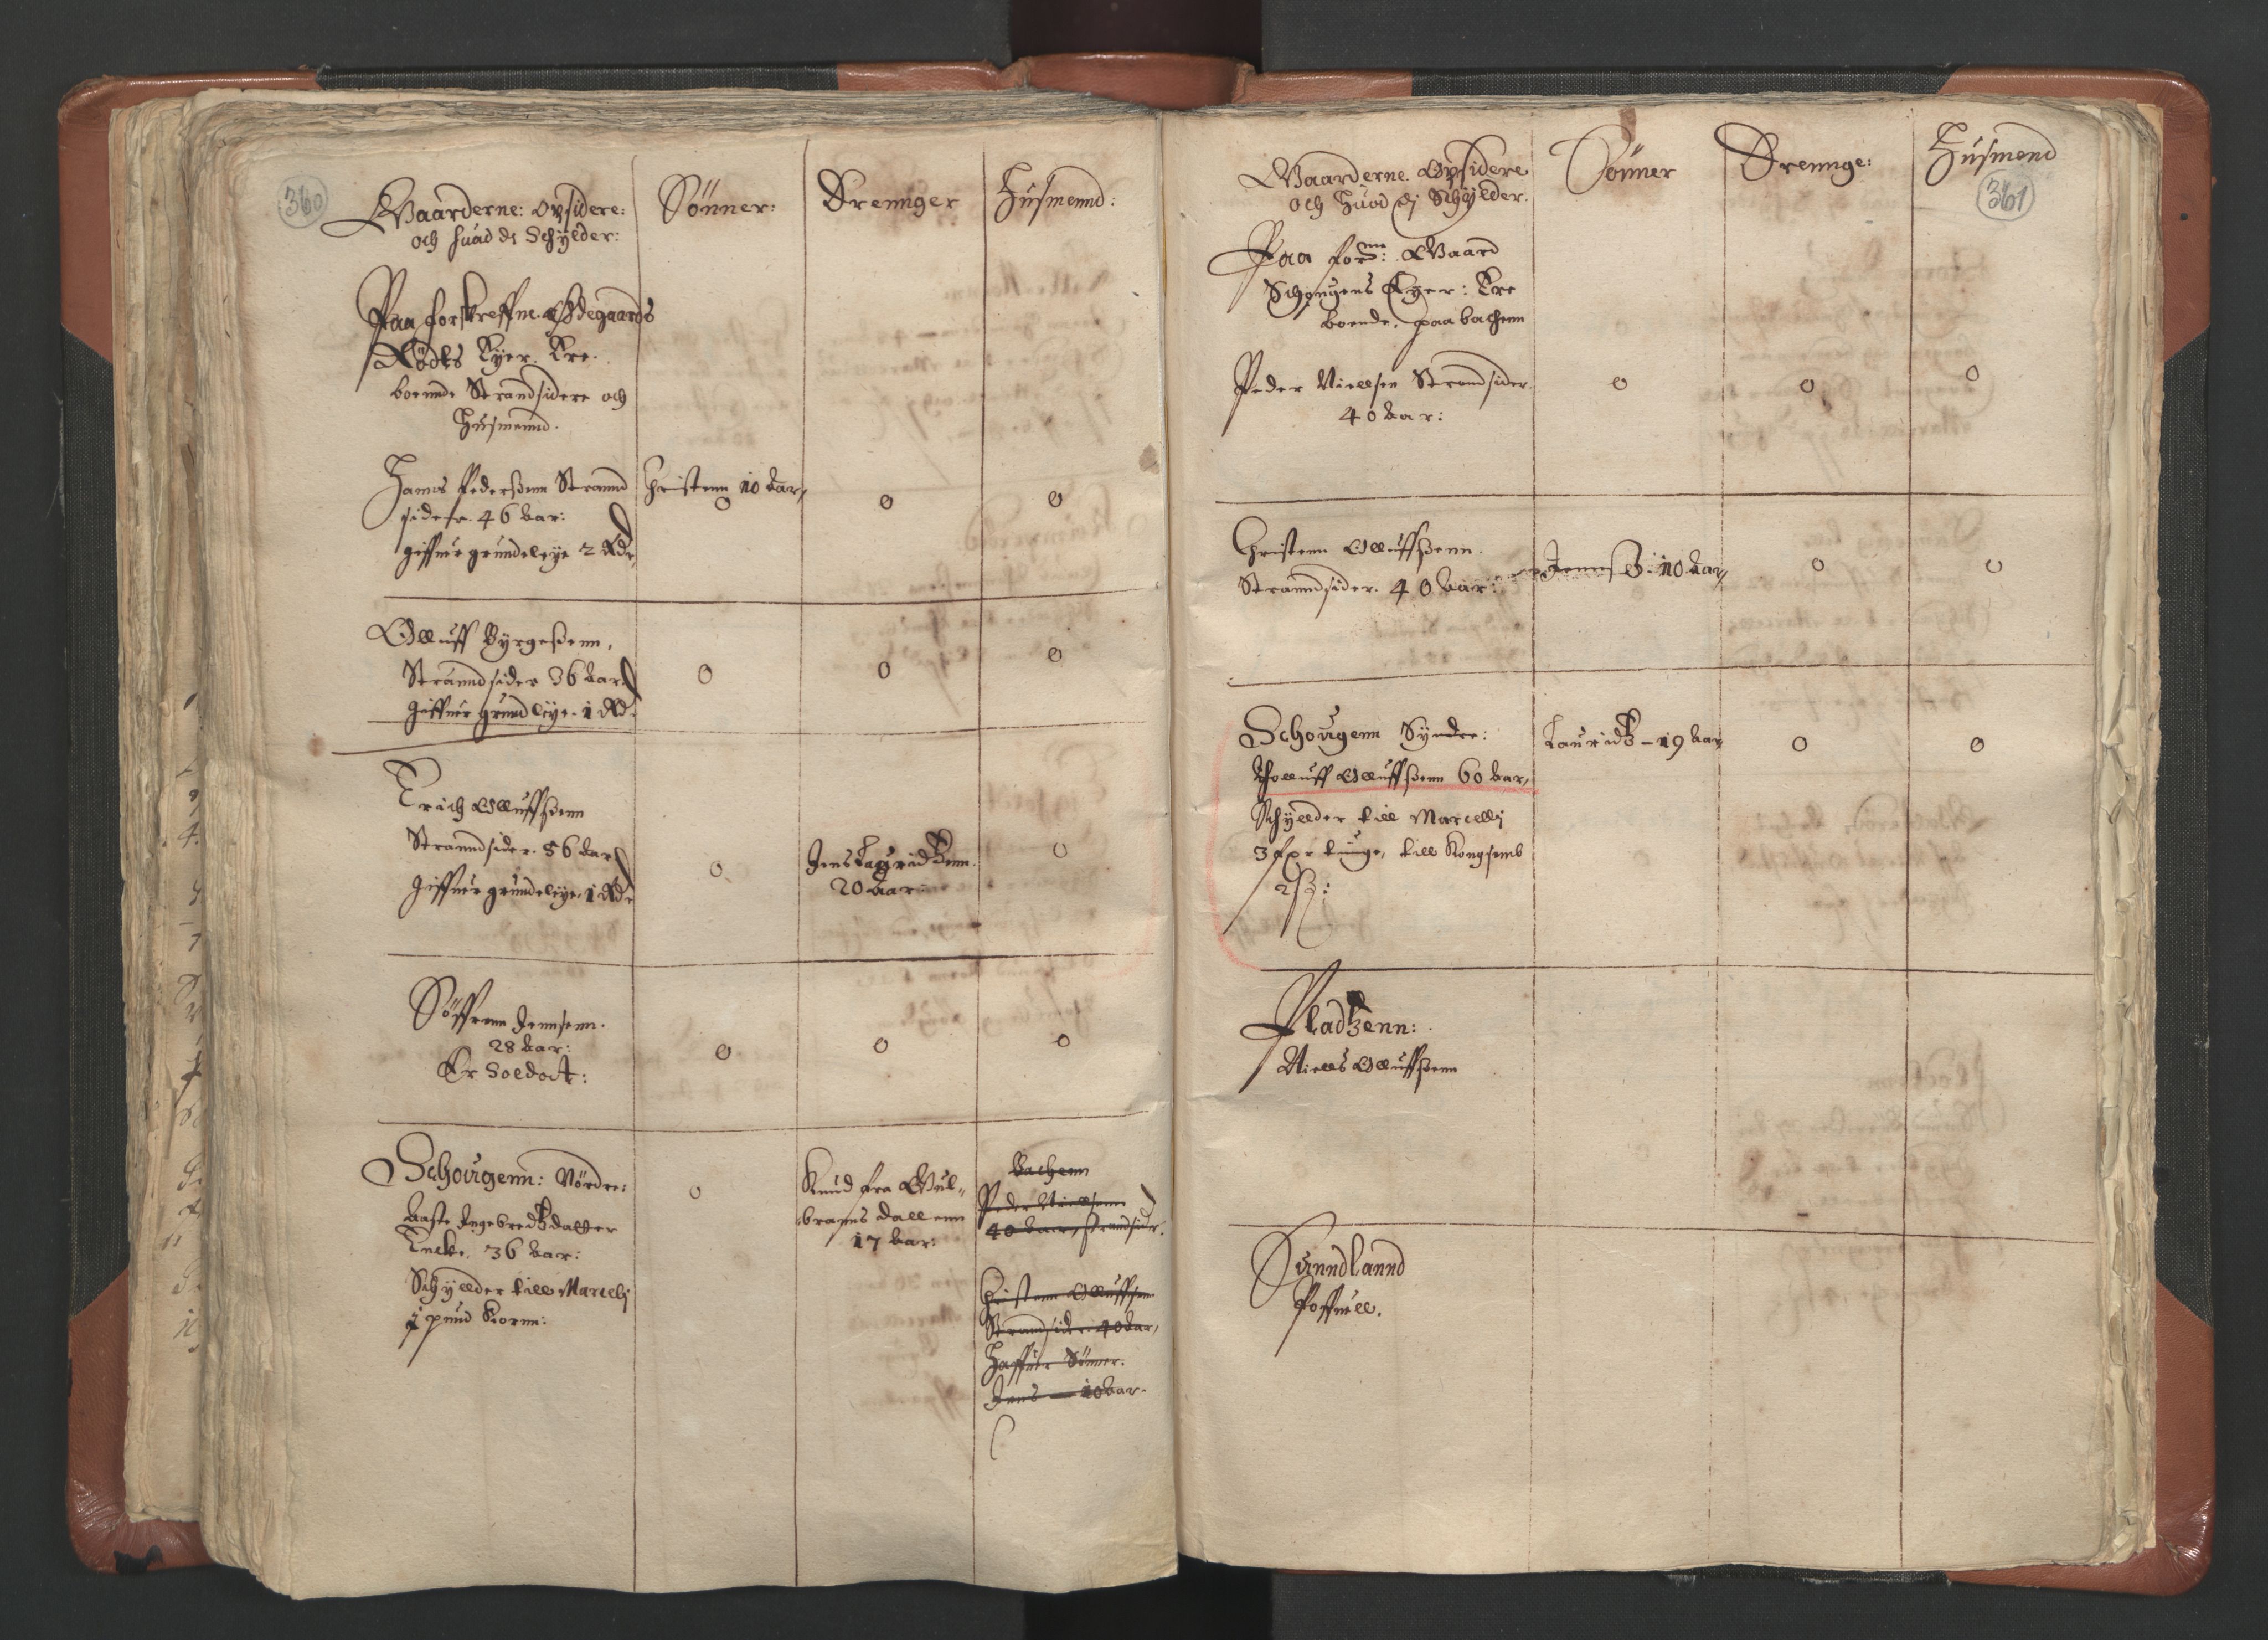 360
Gaarderne: Opsidere:
och huad di Schylder:
Sönner:
Drennger
Husmennd:
Paa forskreffne. Ødegaards
Rödts Eyer. Ere.
boennde Strandsidere och
Husmennd.
Hanns Pederßenn Strannd
sider. 46 aar:
giffuer grundeleye 2 Rdr
Christenn 10 aar,
o
o
o
Olluff Byrgeßenn,
Stranndsider 36 aar
giffuer grundleye. 1 Rd.
o
o
o
Erich Olluffßenn
Stranndsider. 56 aar
giffuer grundeleye. 1 Rdr
o
Jens Lauridßenn.
20 aar
o
Söffrenn Jennsenn.
28 aar:
Er Soldat:
o
o
o
Schougenn: Nördre:
Aaste Ingebredtzdatter
Encke. 36 aar:
Schyllder till Marcelj
1 pund Kornn:
o
Knud fra Gul-
branns dallenn
17 aar:
Bachenn
Peder Nielsenn
40 aar, strandsider.
Christenn Olluffsen
Strandsider. 40 aar,
Haffuer Sönner.
Jens — 10 aar.
361
Gaarderne. Opsidere
och huod dj Schylder.
Sönner
Drennge:
Husmend
Paa forne: Gaard
Schougens Eyer: Ere
boende. paa bachenn
Peder Niellsen Strandsider.
40 aar:
o
o
o
Christenn Olluffßenn.
Stranndsider. 40 aar:
Jennß: 10 aar,
o
o
Schougenn Syndre:
Tholluff Olluffßenn 60 aar,
Schyllder till Marcellj
3 fpr tunge, till Kongsemb
2 ß:
Lauridtz - 19 aar
o
o
Pladtzenn:
Niells Olluffßenn
Sunndlannd
Poffuell.